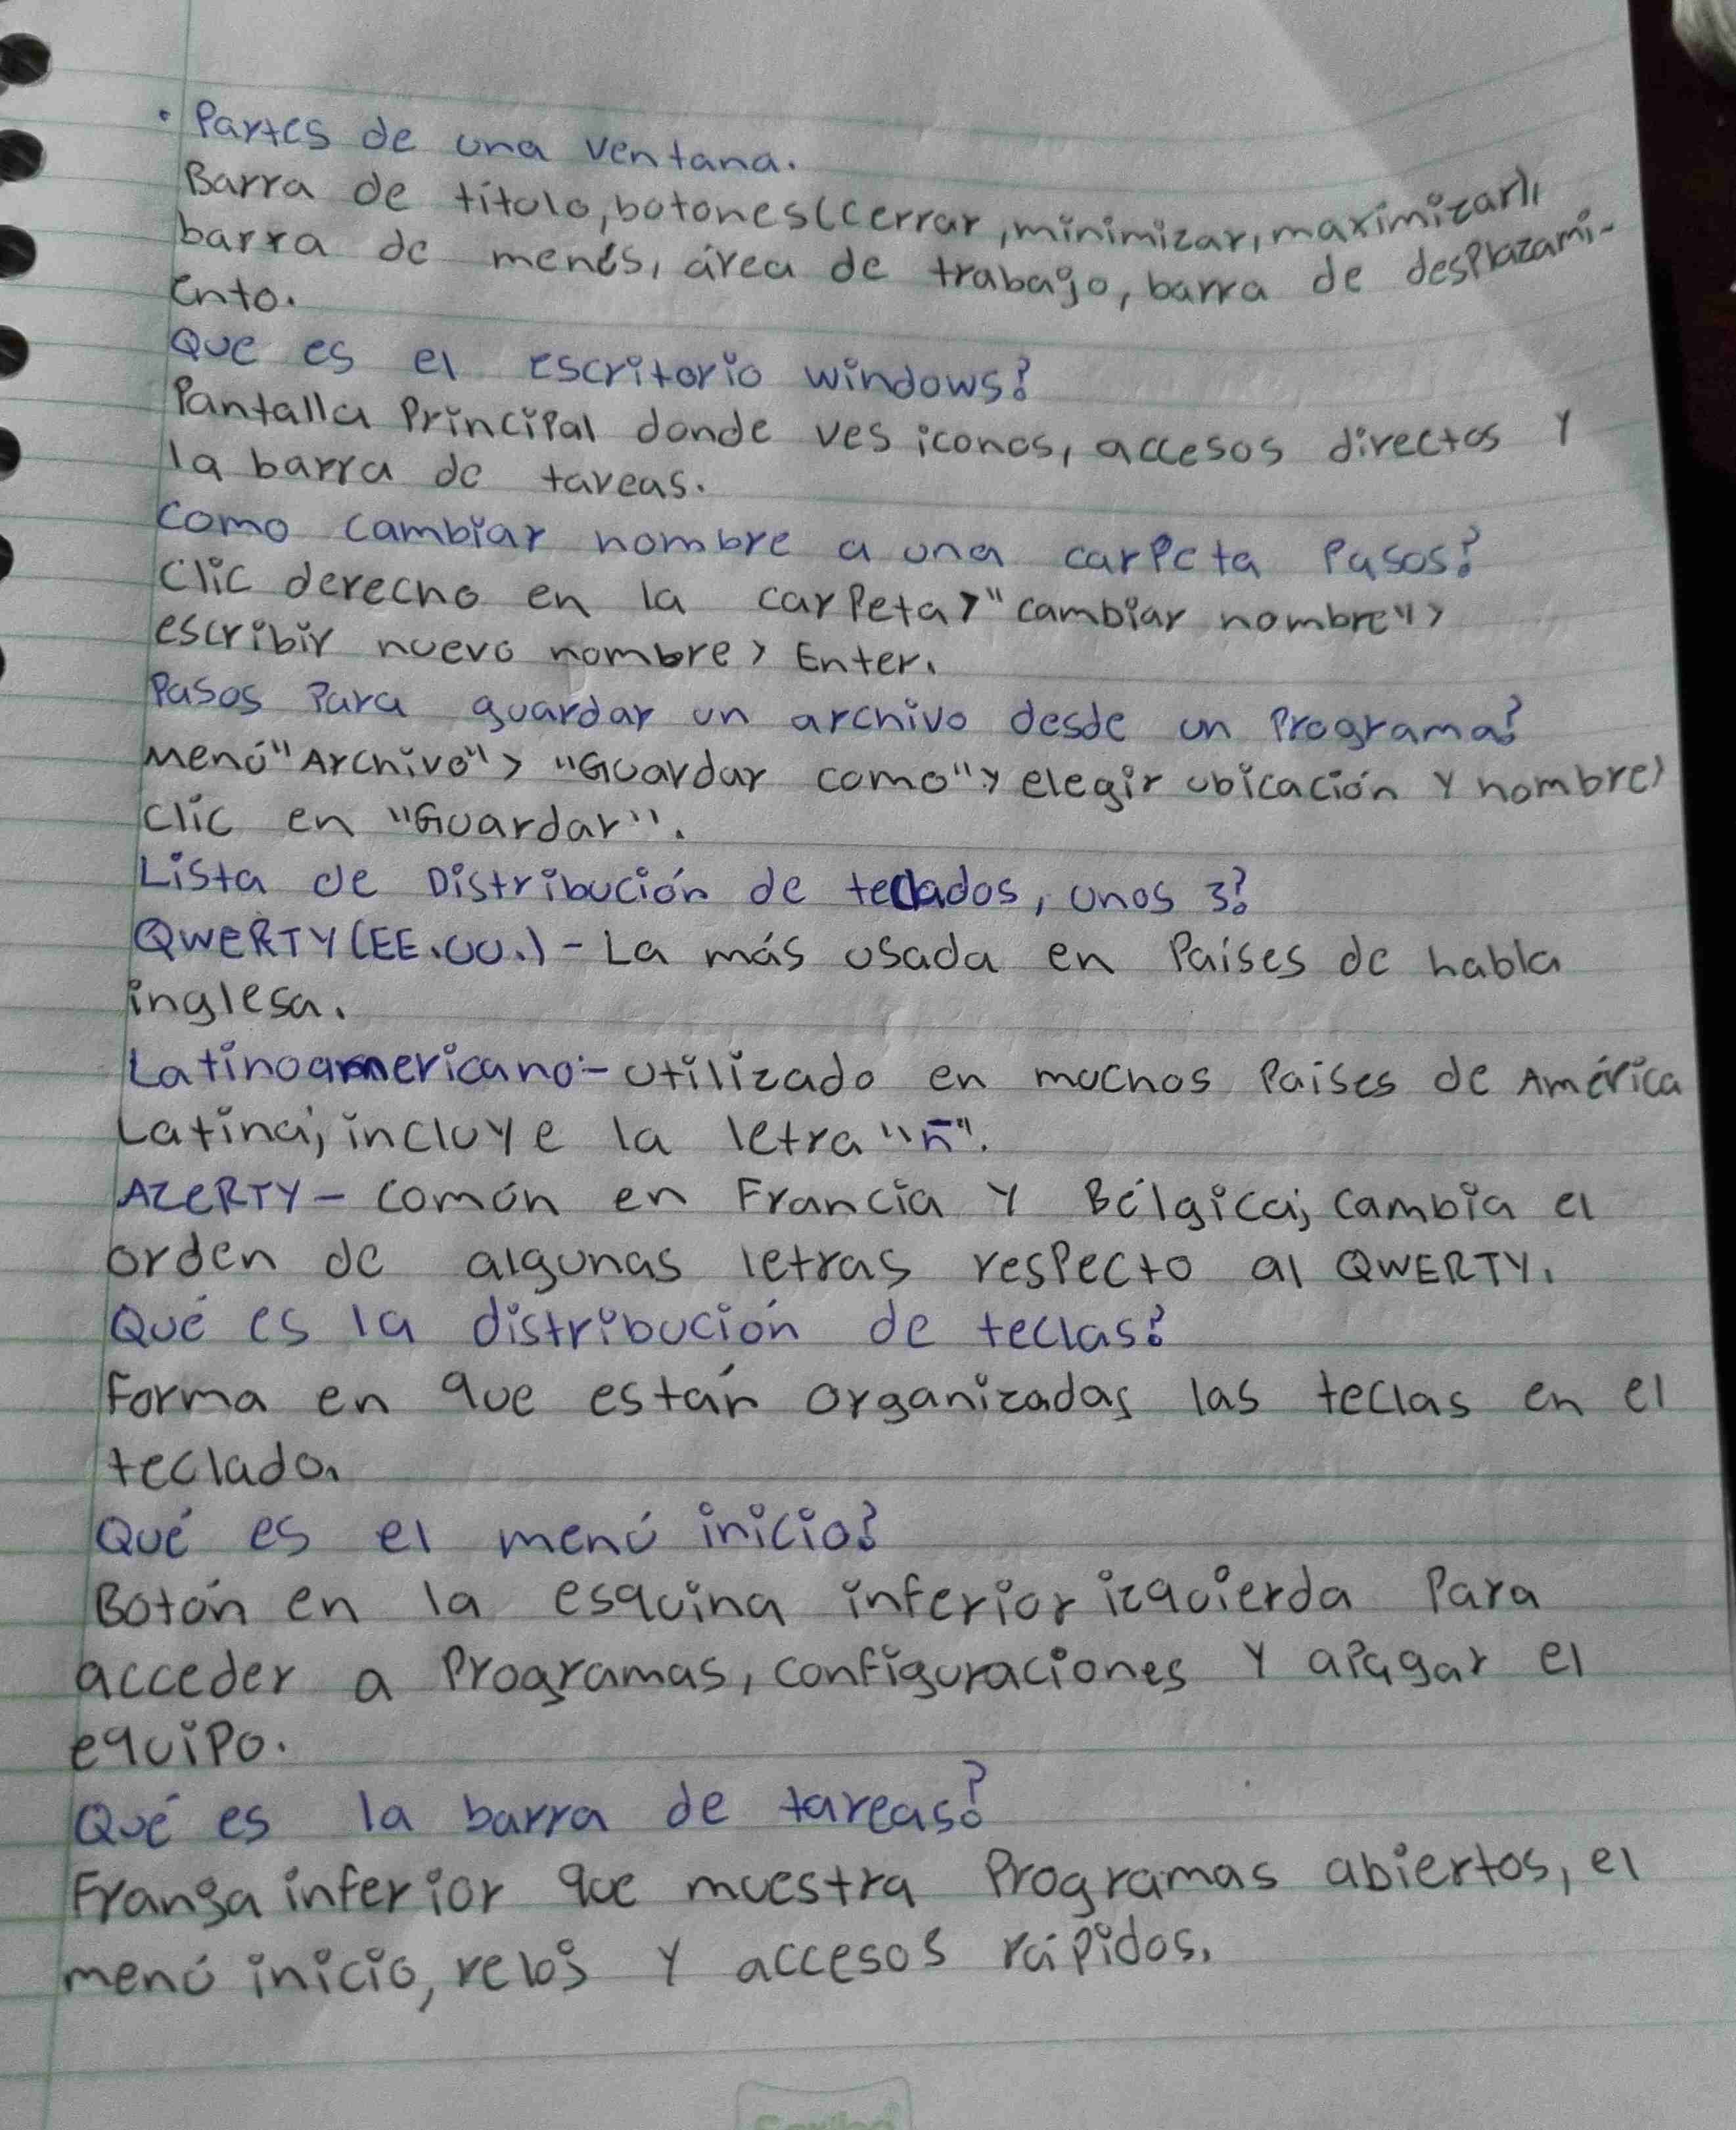 • Partes de una ventana.
Barra de título, botones (cerrar, minimizar, maximizar),
barra de menús, área de trabajo, barra de desplazami-
ento.
Que es el escritorio windows?
Pantalla Principal donde ves iconos, accesos directos y
la barra de tareas.
Como cambiar nombre a una carpeta Pasos?
Clic derecho en la carpeta > "cambiar nombre" >
escribir nuevo nombre > Enter.
Pasos Para guardar un archivo desde un Programa?
Menú "Archivo" > "Guardar como" > elegir ubicación y nombre >
Clic en "Guardar".
Lista de Distribución de teclados, unos 3?
QWERTY (EE.UU.) - La más usada en Paises de habla
inglesa.
Latinoamericano:- utilizado en muchos Paises de América
Latina; incluye la letra "ñ".
AZERTY - común en Francia y Bélgica; cambia el
orden de algunas letras respecto al QWERTY.
Qué es la distribución de teclas?
Forma en que están organizadas las teclas en el
teclado.
Qué es el menú inicio?
Botón en la esquina inferior izquierda Para
acceder a Programas, configuraciones y apagar el
equipo.
Qué es la barra de tareas?
Franja inferior que muestra Programas abiertos, el
menú inicio, reloj y accesos rápidos.
Scribe